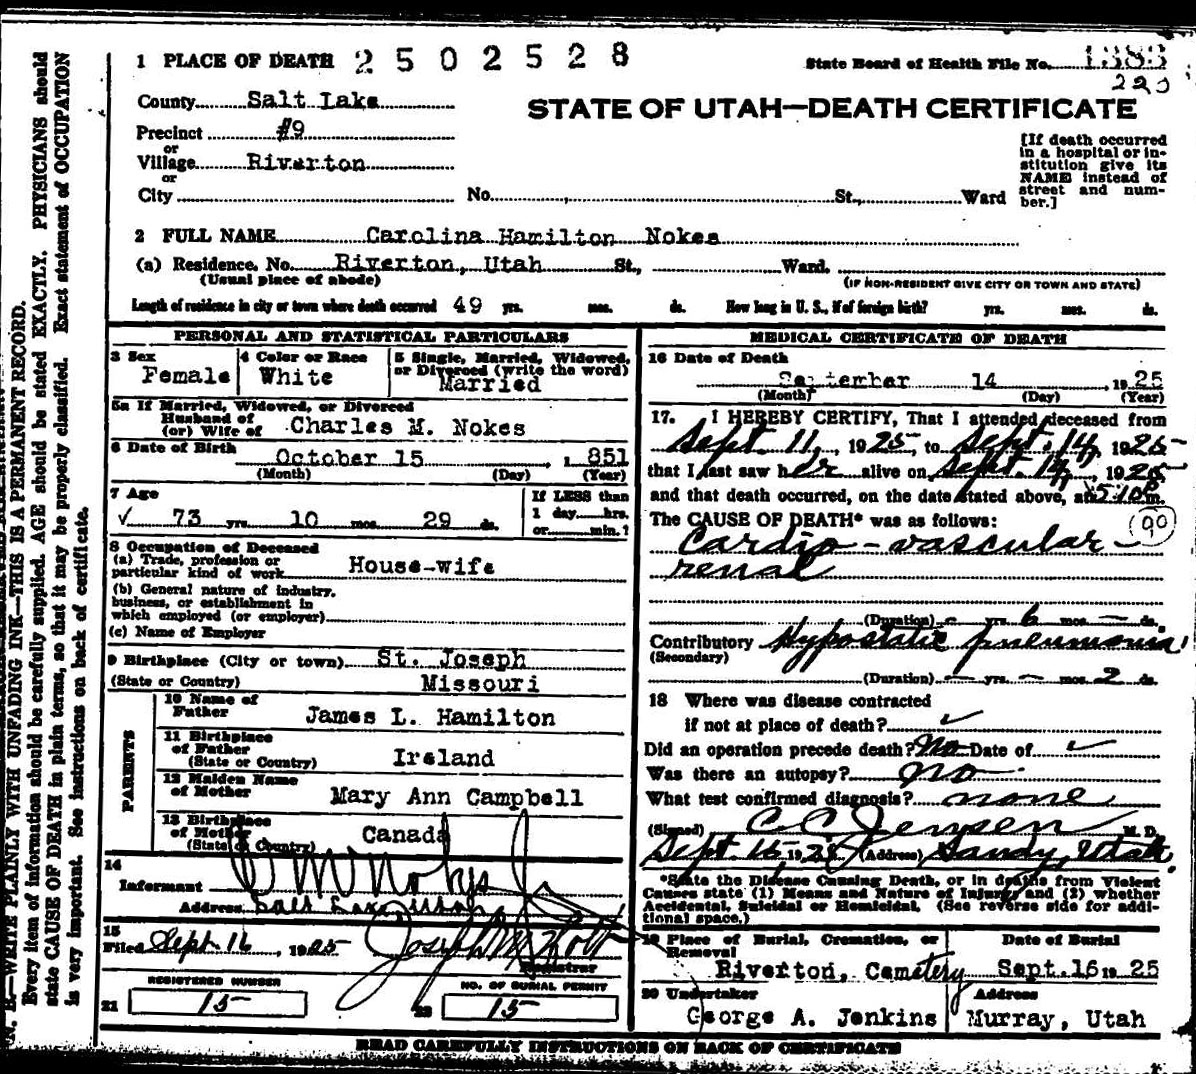 1 PLACE OF DEATH 2502528
State Board of Health File No. 1383
220
County Salt Lake
STATE OF UTAH—DEATH CERTIFICATE
Precinct #9
or
Village Riverton
or
City No. St., Ward
[If death occurred
in a hospital or in-
stitution give its
NAME instead of
street and num-
ber.]
2 FULL NAME Carolina Hamilton Nokes
(a) Residence, No. Riverton, Utah St., Ward.
(Usual place of abode) (IF NON-RESIDENT GIVE CITY OR TOWN AND STATE)
Length of residence in city or town where death occurred 49 yrs. mos. ds. How long in U. S., if of foreign birth? yrs. mos. ds.
PERSONAL AND STATISTICAL PARTICULARS
3 Sex
Female
4 Color or Race
White
5 Single, Married, Widowed,
or Divorced (write the word)
Married
5a If Married, Widowed, or Divorced
Husband of
(or) Wife of Charles M. Nokes
6 Date of Birth
October 15, 1851
(Month) (Day) (Year)
7 Age
✓ 73 yrs. 10 mos. 29 ds.
If LESS than
1 day hrs.
or min.?
8 Occupation of Deceased
(a) Trade, profession or
particular kind of work House-wife
(b) General nature of industry,
business, or establishment in
which employed (or employer)
(c) Name of Employer
9 Birthplace (City or town) St. Joseph
(State or Country) Missouri
PARENTS
10 Name of
Father James L. Hamilton
11 Birthplace
of Father
(State or Country) Ireland
12 Maiden Name
of Mother Mary Ann Campbell
13 Birthplace
of Mother
(State or Country) Canada
14
Informant C M Nokes Jr
Address Salt Lake Utah
15
Filed Sept. 16, 1925 Joseph M. Holt
Registrar
REGISTERED NUMBER
21 15
NO. OF BURIAL PERMIT
22 15
MEDICAL CERTIFICATE OF DEATH
16 Date of Death
September 14, 1925
(Month) (Day) (Year)
17. I HEREBY CERTIFY, That I attended deceased from
Sept. 11, 1925, to Sept. 14, 1925
that I last saw her alive on Sept 14, 1925
and that death occurred, on the date stated above, at 5:10 P m.
The CAUSE OF DEATH* was as follows:
90
Cardio-vascular-
renal
(Duration) — yrs. 6 mos. — ds.
Contributory Hypostatic pneumonia
(Secondary)
(Duration) — yrs. — mos. 2 ds.
18 Where was disease contracted
if not at place of death? ✓
Did an operation precede death? No Date of ✓
Was there an autopsy? no
What test confirmed diagnosis? none
(Signed) C. C. Jensen M. D.
Sept. 15 1925 (Address) Sandy, Utah.
*State the Disease Causing Death, or in deaths from Violent
Causes state (1) Means and Nature of Injury; and (2) whether
Accidental, Suicidal or Homicidal. (See reverse side for addi-
tional space.)
19 Place of Burial, Cremation, or
Removal
Riverton, Cemetery
Date of Burial
Sept. 16 1925
20 Undertaker
George A. Jenkins
Address
Murray, Utah
READ CAREFULLY INSTRUCTIONS ON BACK OF CERTIFICATE
N. B.—WRITE PLAINLY WITH UNFADING INK—THIS IS A PERMANENT RECORD.
Every item of information should be carefully supplied. AGE should be stated EXACTLY. PHYSICIANS should
state CAUSE OF DEATH in plain terms, so that it may be properly classified. Exact statement of OCCUPATION
is very important. See instructions on back of certificate.